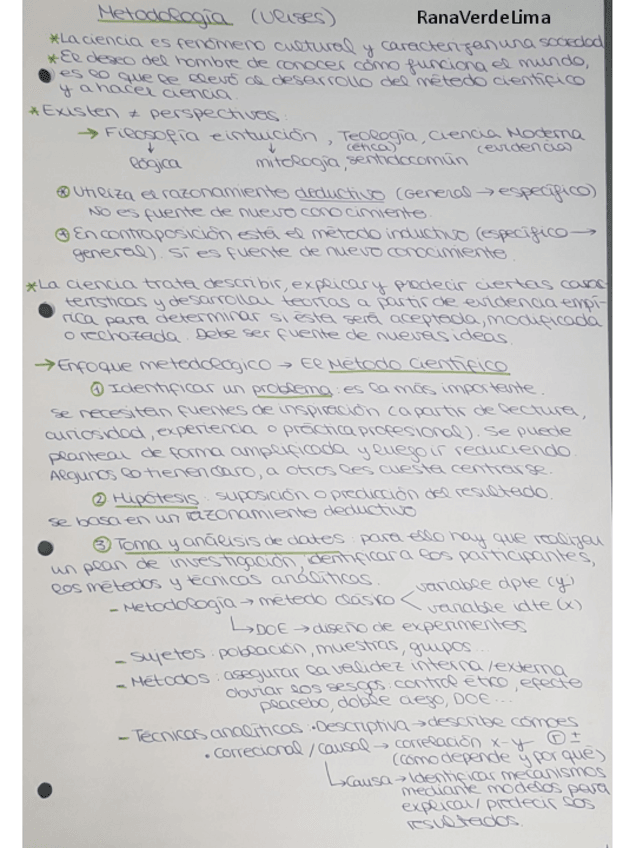 Metodología (Ulises) RanaVerdeLima
*La ciencia es fenómeno cultural y caracterizan una sociedad
*El deseo del hombre de conocer cómo funciona el mundo,
es lo que le llevó al desarrollo del método científico
y a hacer ciencia.
*Existen ≠ perspectivas:
→ Filosofía e intuición, Teología, Ciencia Moderna
↓ ↓ (ética) (evidencia)
lógica mitología, sentido común
* Utiliza el razonamiento deductivo (General → específico)
No es fuente de nuevo conocimiento.
* En contraposición está el método inductivo (específico →
general). Sí es fuente de nuevo conocimiento.
*La ciencia trata describir, explicar y predecir ciertas carac-
terísticas y desarrollar teorías a partir de evidencia empí-
rica para determinar si ésta será aceptada, modificada
o rechazada. Debe ser fuente de nuevas ideas.
→ Enfoque metodológico → El Método Científico
① Identificar un problema: es la más importante.
Se necesitan fuentes de inspiración (a partir de lectura,
curiosidad, experiencia o práctica profesional). Se puede
plantear de forma amplificada y luego ir reduciendo.
Algunos lo tienen claro, a otros les cuesta centrarse.
② Hipótesis: suposición o predicción del resultado.
se basa en un razonamiento deductivo
③ Toma y análisis de datos: para ello hay que realizar
un plan de investigación, identificar a los participantes,
los métodos y técnicas analíticas.
- Metodología → método clásico < variable dpte (y)
variable idte (x)
↳ DOE → diseño de experimentos
- Sujetos: población, muestras, grupos...
- Métodos: asegurar la validez interna/externa
obviar los sesgos: control ético, efecto
placebo, doble ciego, DOE...
- Técnicas analíticas: · Descriptiva → describe cómo es
· correcional / causal → correlación x-y ⓡ ±
(cómo depende y por qué)
↳ causa → Identificar mecanismos
mediante modelos para
explicar/predecir los
resultados.